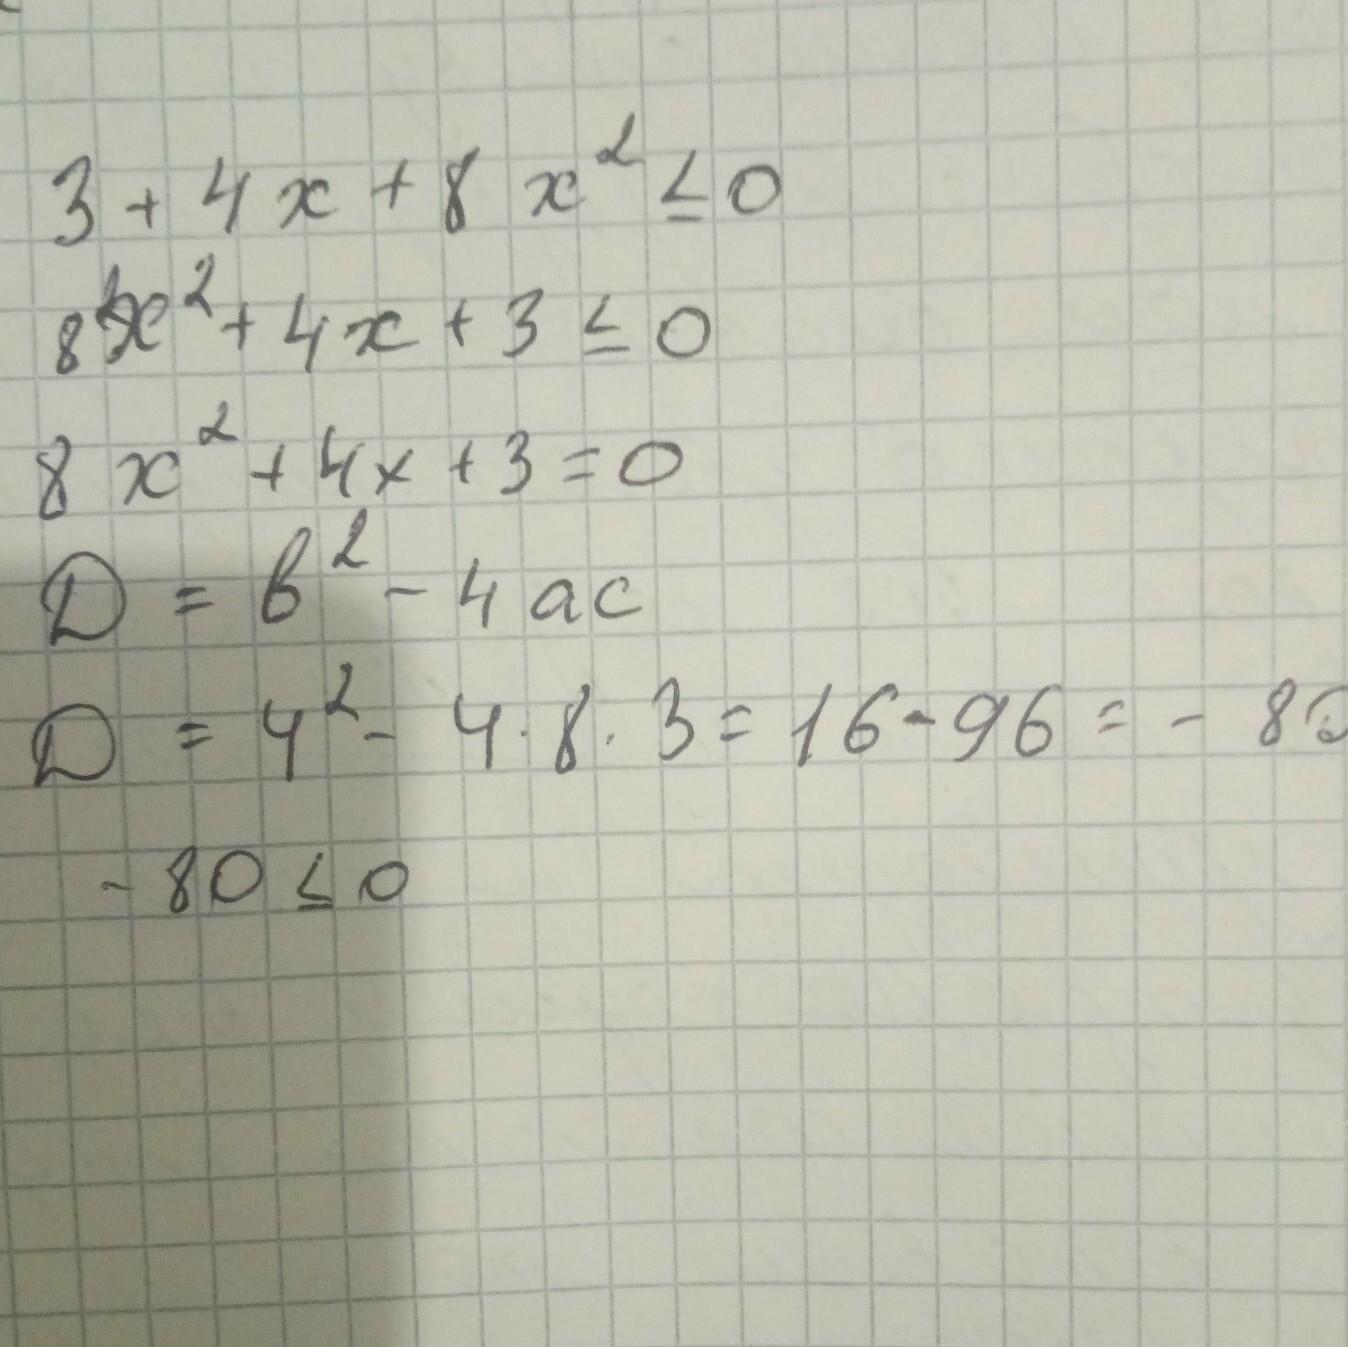 3 + 4x + 8x² ≤ 0
8x² + 4x + 3 ≤ 0
8x² + 4x + 3 = 0
D = b² - 4ac
D = 4² - 4 · 8 · 3 = 16 - 96 = - 80
- 80 ≤ 0